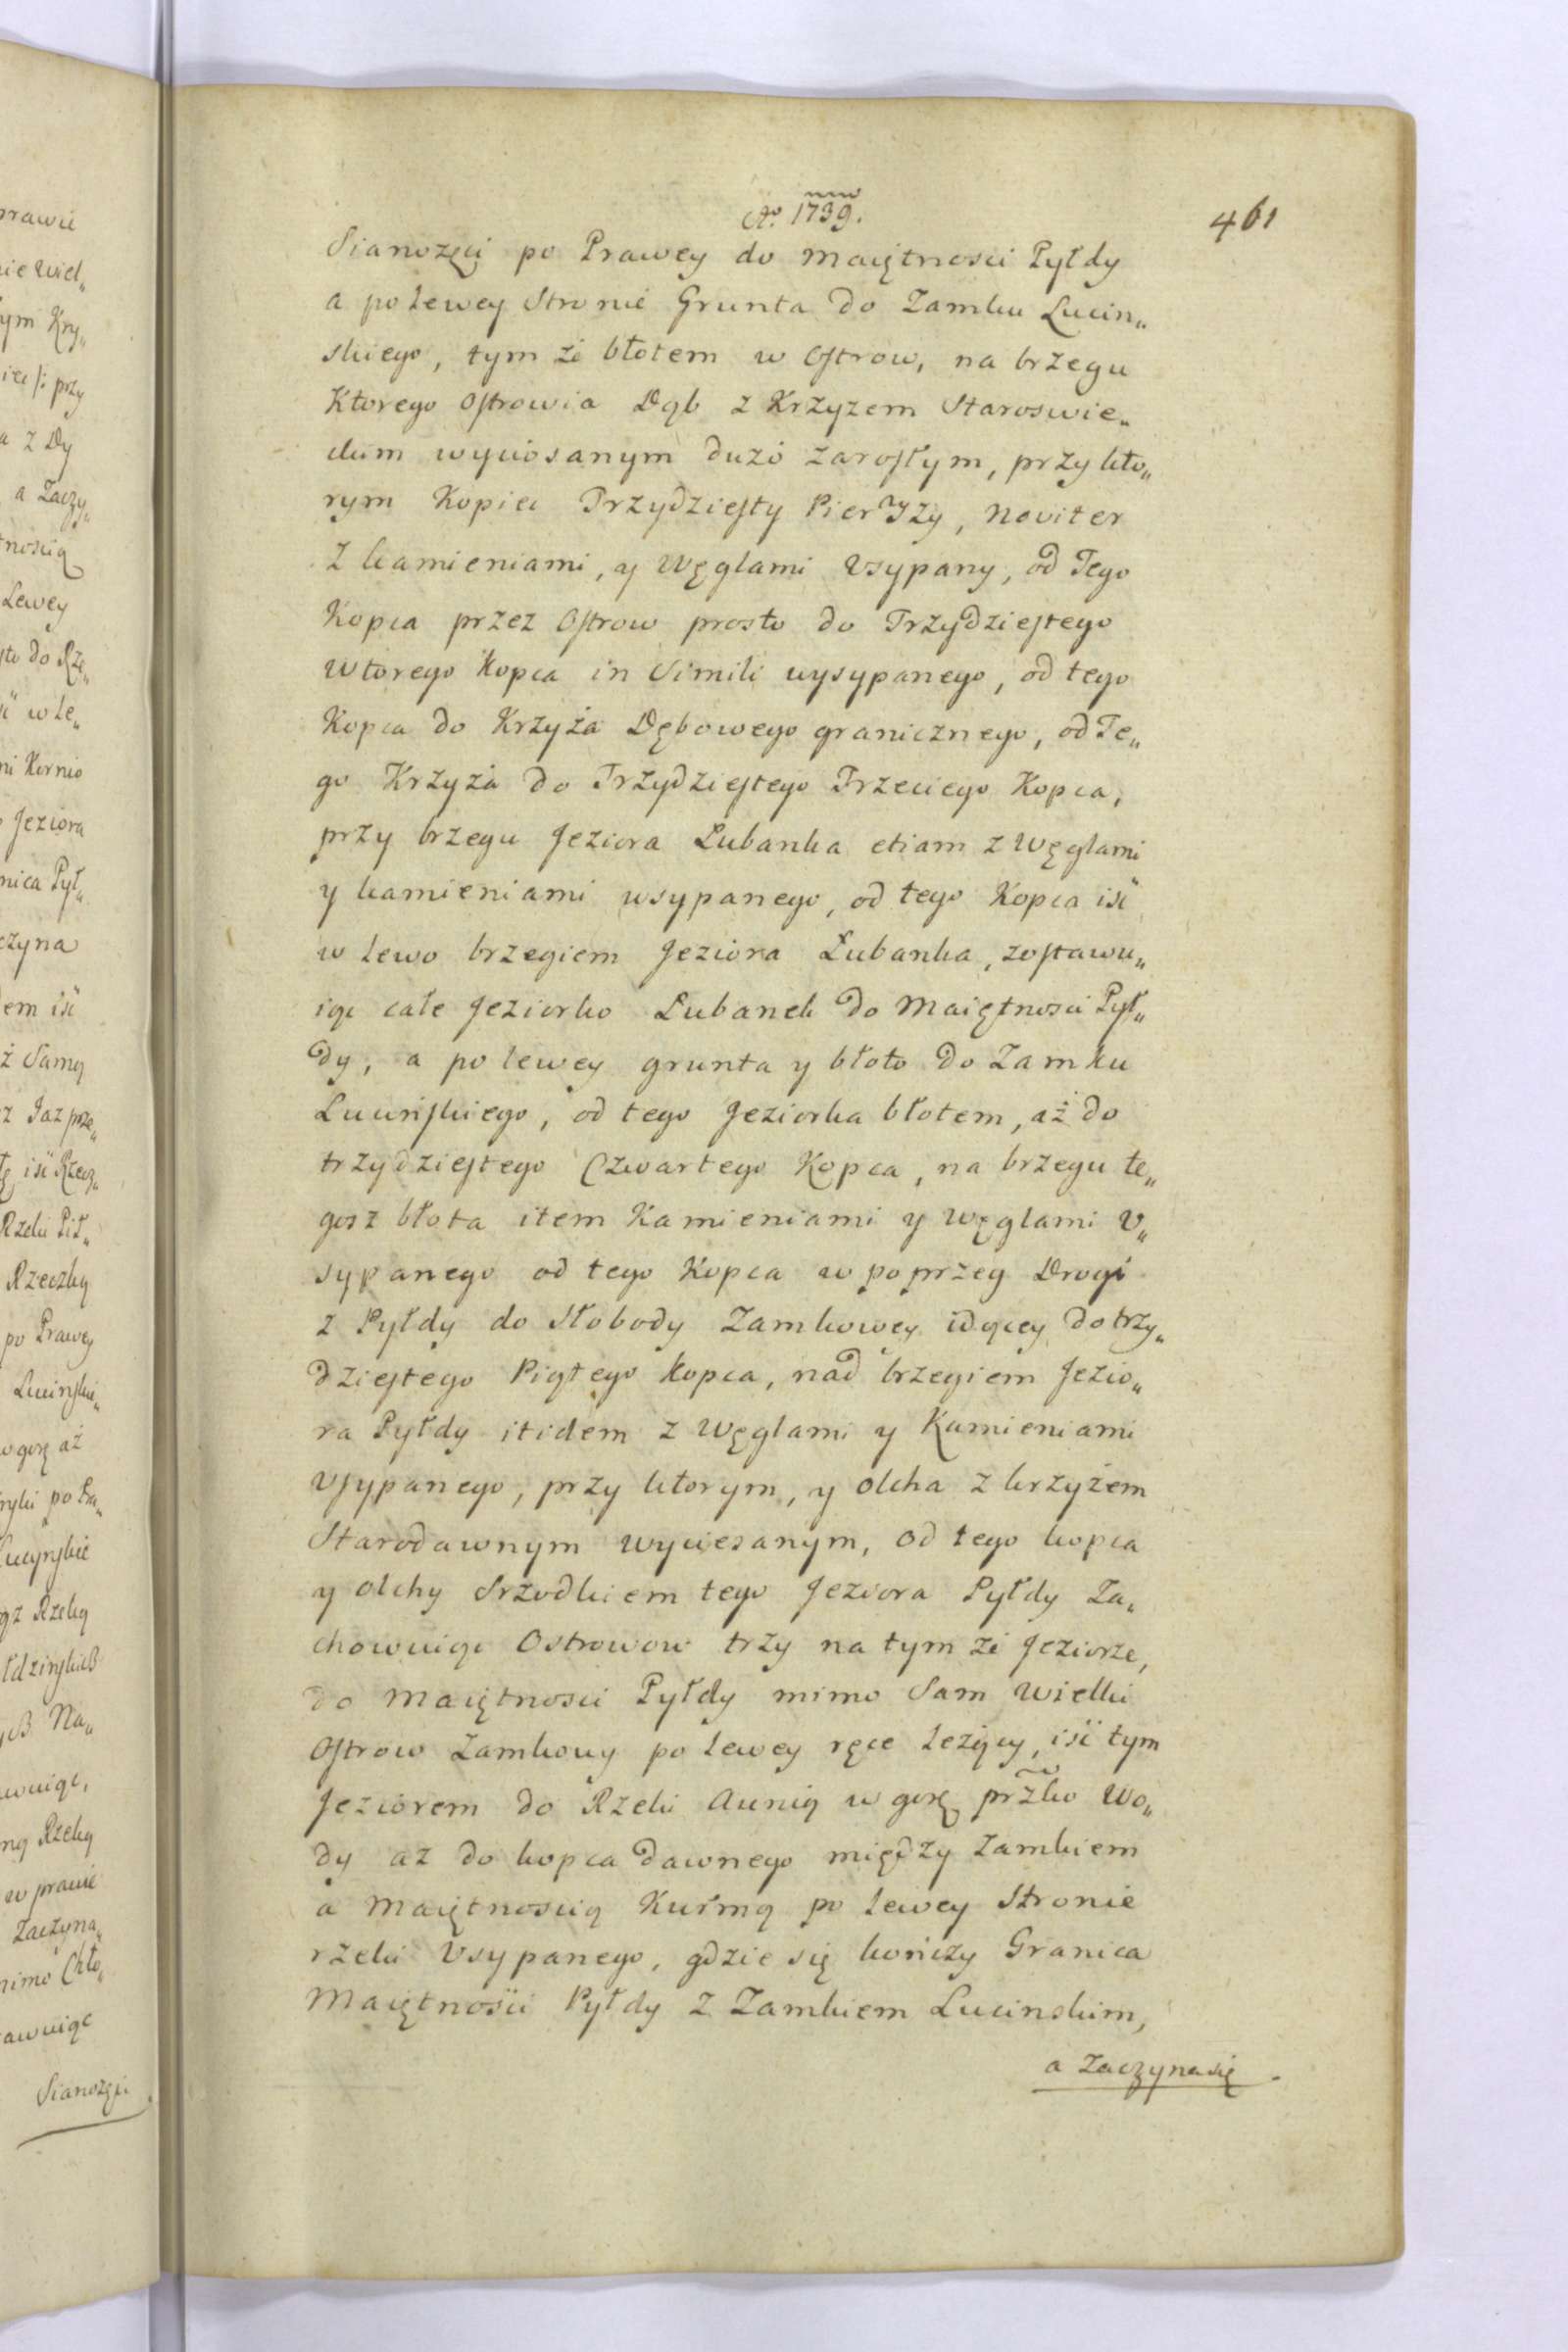 Ao. 1739.
461
Sianożęci po Prawey do Maiętnosci Pyłdy
a po lewey Stronie Grunta do Zamku Lucin„
skiego, tym że błotem w Ostrow, na brzegu
Ktorego Ostrowia Dąb z Krzyzem Staroswie„
ckim wyciosanym dużo zarosłym, przy kto„
rym Kopiec Trzydziesty Pierwszy, noviter
z kamieniami, y Węglami Vsypany, od Tego
Kopca przez Ostrow prosto do Trzydziestego
wtorego Kopca in Simili wysypanego, od tego
Kopca do Krzyża Dębowego granicznego, od Te„
go Krzyża do Trzydziestego Trzeciego Kopca,
przy brzegu Jeziora Lubanka etiam z Węglami
y kamieniami usypanego, od tego Kopca iść
w lewo brzegiem Jeziora Lubanka, zostawu„
iąc całe Jeziorko Lubanek do Maiętnosci Pył„
dy, a po lewey grunta y błoto do Zamku
Lucińskiego, od tego Jeziorka błotem, aż do
trzydziestego Czwartego Kopca, na brzegu te„
gosz błota item Kamieniami y Węglami V„
sypanego od tego Kopca w poprzeg Drogi
z Pyłdy do Słobody Zamkowey idącey do trzy„
dziestego Piątego kopca, nad brzegiem Jezio„
ra Pyłdy itidem z Węglami y Kamieniami
Vsypanego, przy ktorym, y olcha z krzyżem
Starodawnym wyciesanym, od tego kopca
y olchy Srzodkiem tego Jeziora Pyłdy Za„
chowuiąc Ostrowow trzy na tym że Jeziorze,
do Maiętnosci Pyłdy mimo Sam Wielki
Ostrow Zamkowy po lewey ręce leżący, iść tym
Jeziorem do Rzeki Aunią w gorę przko Wo„
dy aż do kopca dawnego między Zamkiem
a Maiętnoscią Kurmą po lewey Stronie
rzeki Vsypanego, gdzie się kończy Granica
Maiętności Pyłdy z Zamkiem Lucinskim,
a Zaczyna się